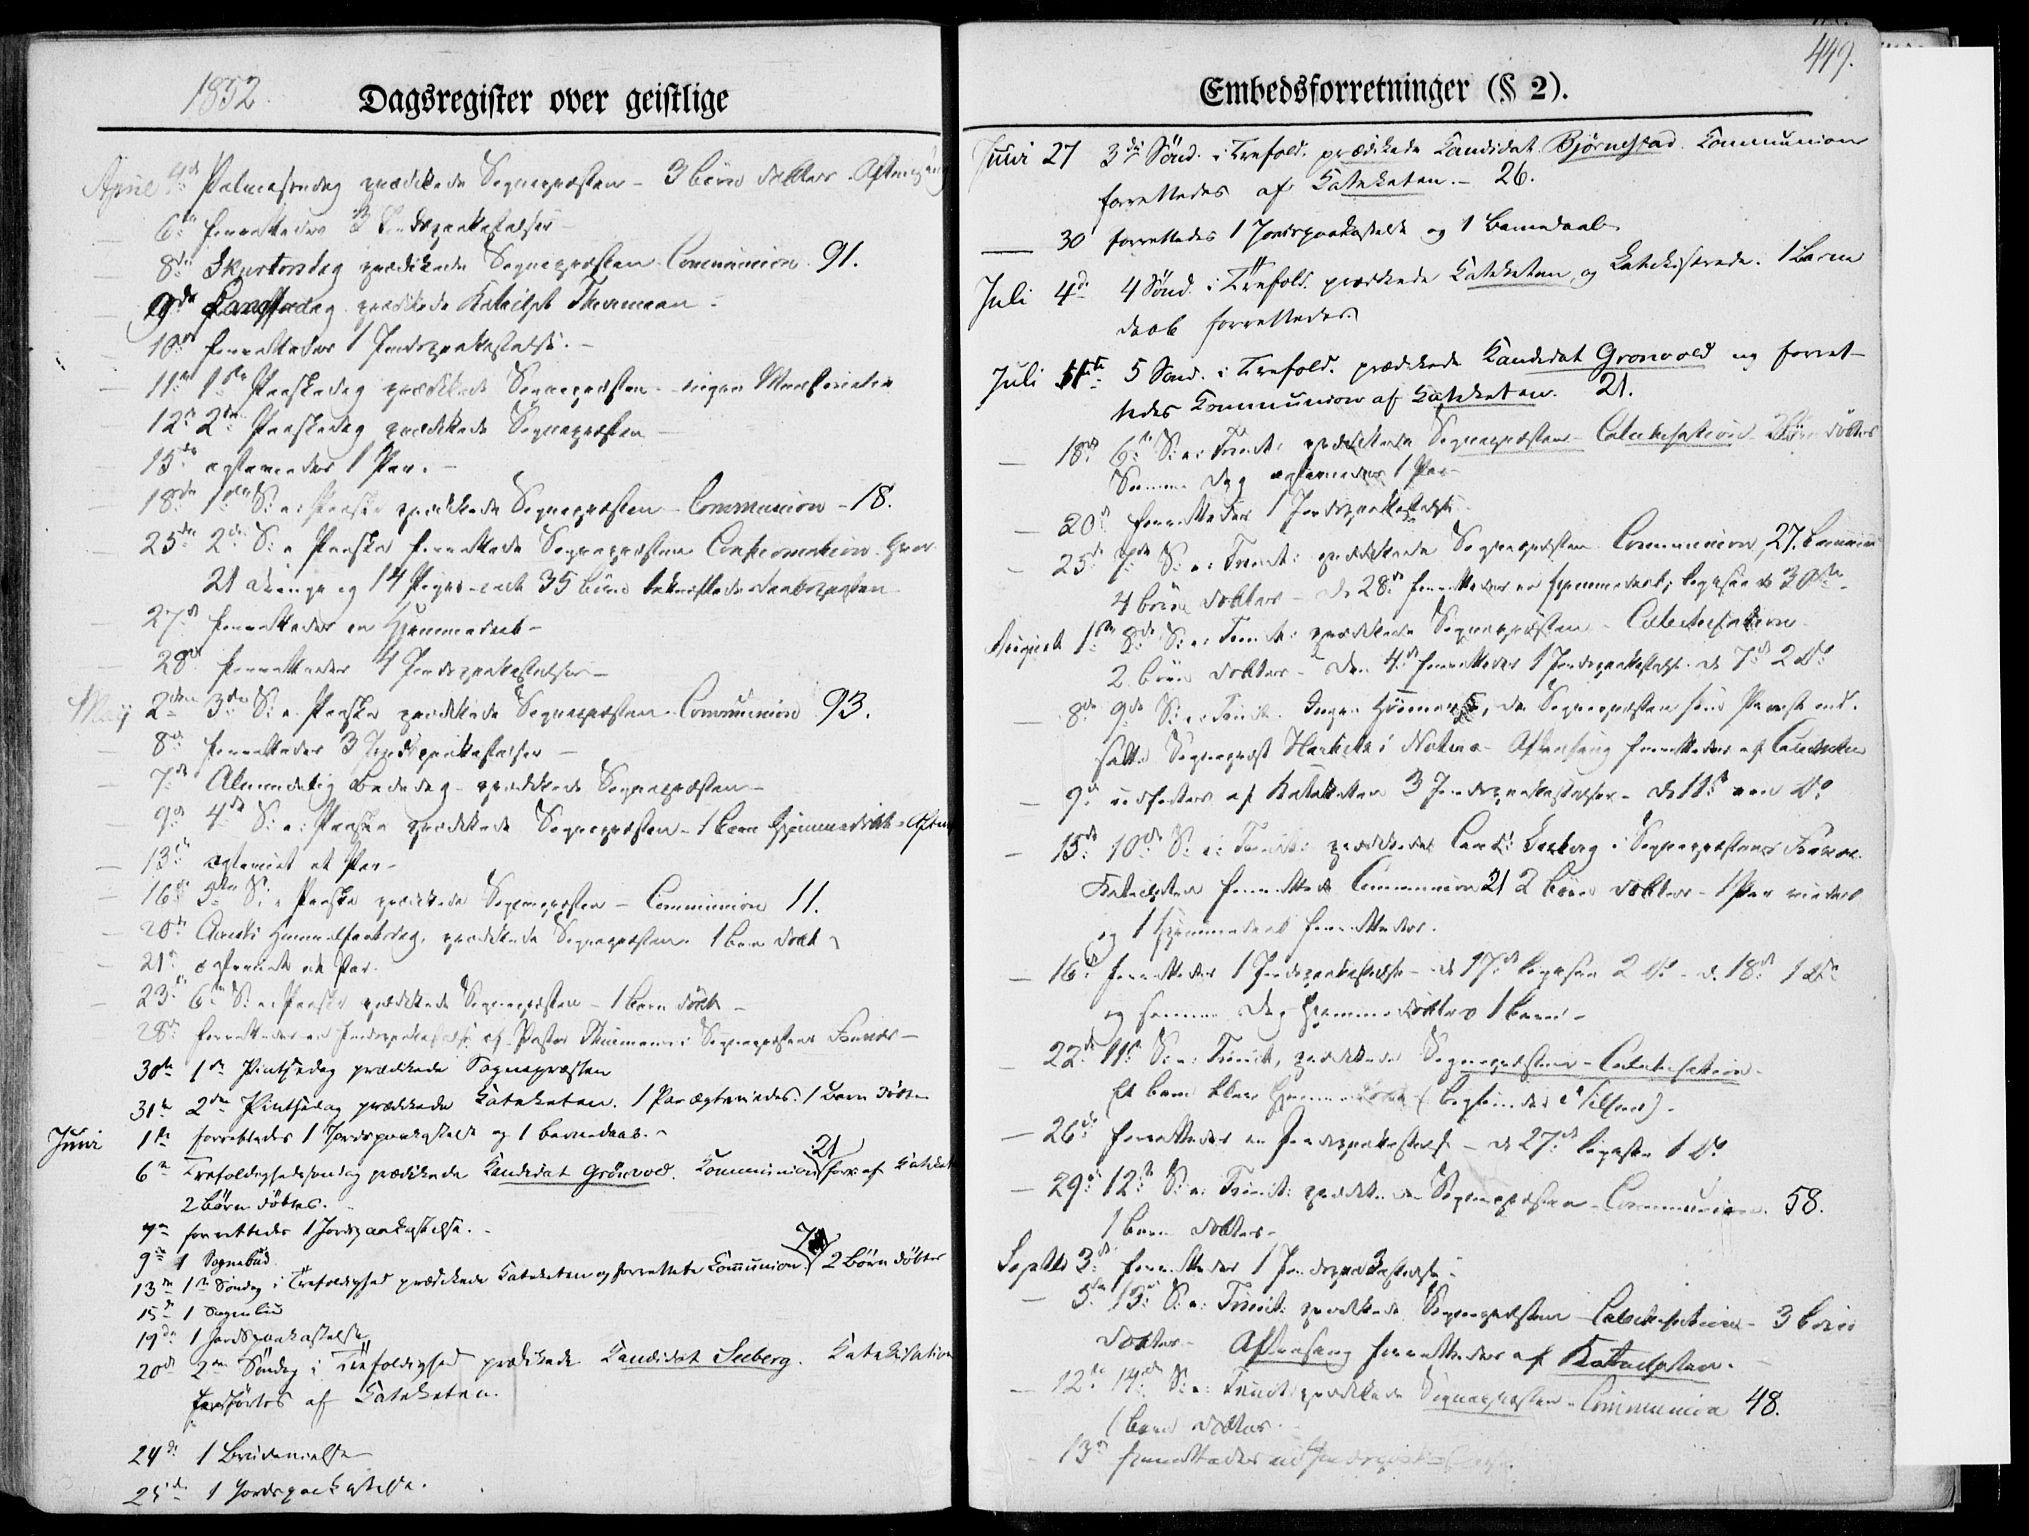 1852.
Dagsregister over geistlige
April 4de Palmesøndag prædikede Sognepræsten - 3 børn døbtes. Aftensang
6te forrettedes 3 Jordspaakastelser -
8de Skjertorsdag prædikede Sognepræsten. Communion 91.
9de Langfredag prædikede Katechet Thurmann -
10de forrettedes 1 Jordspaakastelse. -
11te 1ste Paaskedag prædikede Sognepræsten - ingen
12te 2den Paaskedag prædikede Sognepræsten -
15de ægteviedes 1 Par. -
18de 1ste S: e: Paaske prædikede Sognepræsten - Communion - 18.
25de 2den S: e: Paaske forrettede Sognepræsten Confirmation. Hvor
21 Drenge og 14 Piger - ialt 35 børn bekræftede Daabspagten
27de forrettedes en Hjemmedaab -
28de forrettedes 4 Jordspaakastelser -
May 2den 3die S: e: Paaske prædikede Sognepræsten - Communion 93.
8de forrettedes 3 Jordspaakastelser -
7de Almindelig Bededag - prædikede Sognepræsten -
9de 4de S: e: Paaske prædikede Sognepræsten - 1 barn Hjemmedøbt - Aften
13de ægteviet et Par -
16de 5te S: e: Paaske prædikede Sognepræsten - Communion 11.
20de Christi Himmelfartsdag, prædikede Sognepræsten. 1 barn døbt
21de ægteviedt et Par.
23de 6te S: e: Paaske prædikede Sognepræsten - 1 barn døbt -
28de forrettedes en Jordspaakastelse af Pastor Thurmann i Sognepræstens Fravær -
30te 1ste Pintsedag prædikede Sognepræsten
31te 2den Pintsedag prædikede Kateketen. 1 Par ægteviedes. 1 Barn døbtes
Juni 1ste forrettedes 1 Jordspaakastelse og 1 barnedaab. -
21
6te Trefoldighedssøndag prædikede Kandidat Grönvold. Kommunion forr: af Kateket
2 Börn döbtes.
7de forrettedes 1 Jordspaakastelse. -
9de 1 Sognebud 7
13de 1ste Söndag i Trefoldighed prædikede Kateketen og forrettete Communion. 2 Börn döbtes
15de 1 Sognebud
19de 1 Jordspaakastelse
20de 2den Söndag i Trefoldighed prædikede Kandidat Seeberg. Katekisation
forrettes af Kateketen.
24de 1 Brudevielse
25de 1 Jordspaakastelse.
449.
Embedsforretninger (§ 2).
Juni 27 3die Sönd. i Trefold. prædikede Kandidat Bjørnstad. Communion
forrettedes af Kateketen. - 26.
30 forrettedes 1 Jordspaakastelse og 1 Barnedaab.
Juli 4de 4 Sönd. i Trefold. prædikede Kateketen og Katekiserede. 1 Barne
daab forrettedes.
Juli 11te 5 Sönd. i Trefold. prædikede Kandidat Grönvold og forret-
tedes Kommunion af Kateketen. 21.
18de 6te S: e: Trinit: prædikede Sognepræsten - Catechisation - børn døbtes
Samme Dag ægteviedes 1 Par -
20de forrettedes 1 Jordspaakastelse -
25de 7de S: e: Trinit: prædikede Sognepræsten. Communion 27.
4 børn døbtes - d. 28de forrettedes en Hjemmedaab, ligesaa d. 30te -
August 1ste 8de S: e: Trinit: prædikede Sognepræsten - Catechisation -
2 børn døbtes - den 4de forrettedes 1 Jordspaakastelse. d. 7de 2 Do
8de 9de S: e: Trinit. Ingen, da Sognepræsten som Provst ind-
satte Sognepræst i - Aftensang forrettedes af Catecheten
9de af Katecheten 3 Jordspaakastelser - d. 11te een Do
15de 10de S: e: Trinit: prædikede Cand: Seeberg i Sognepræstens Fravær.
Katecheten forrettede Communion 21 2 børn døbtes - 1 Par viedes
og 1 Hjemmedaab forrettedes.
16de forrettedes 1 Jordspaakastelse - d. 17de ligesaa 2 Do - d. 18de 1 Do
og samme Dag Hjemmedøbtes 1 barn -
22de 11te S: e: Trinit, prædikede Sognepræsten - Catechisation -
Et barn blev Hjemmedøbt
26de forrettedes en Jordspaakastelse - d. 27de ligesaa 1 Do
29de 12te S: e: Trinit: prædikede Sognepræsten - Communion. 58.
1 barn døbtes -
Septbr 3de forrettedes 1 Jordspaakastelse -
5te 13de S: e: Trinit: prædikede Sognepræsten - Catechisation - 3 børn
døbtes - Aftensang forrettedes af Katecheten. -
12te 14de S: e: Trinit: prædikede Sognepræsten - Communion 48.
1 barn døbtes -
13de forrettedes en Jordspaakastelse.